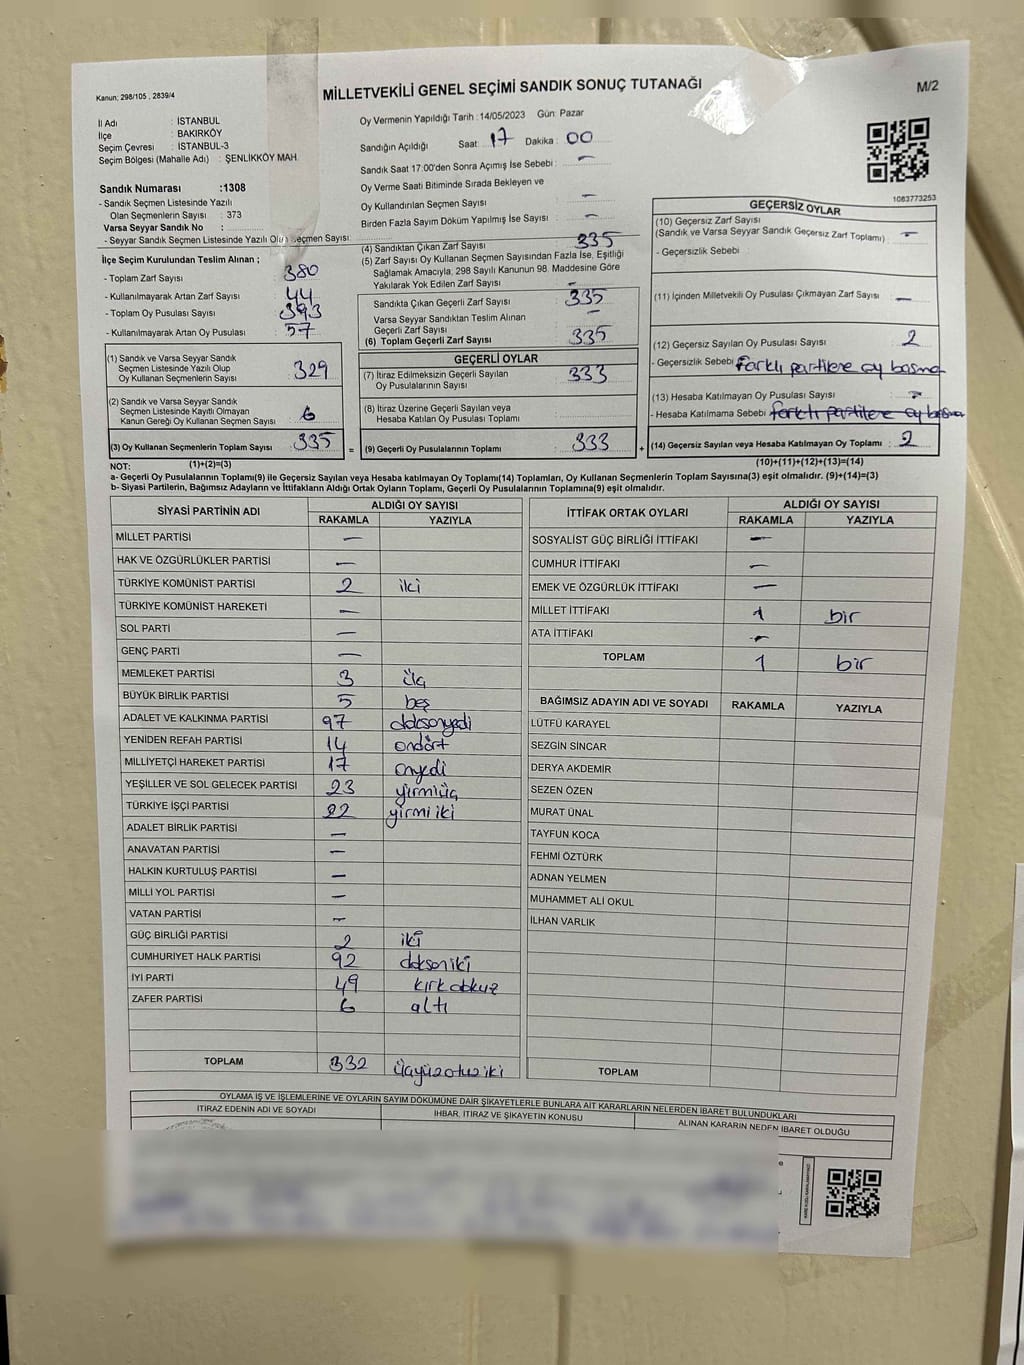 Kanun: 298/105 , 2839/4
MİLLETVEKİLİ GENEL SEÇİMİ SANDIK SONUÇ TUTANAĞI
M/2
İl Adı : İSTANBUL
İlçe : BAKIRKÖY
Seçim Çevresi : İSTANBUL-3
Seçim Bölgesi (Mahalle Adı) : ŞENLİKKÖY MAH.
Sandık Numarası :1308
- Sandık Seçmen Listesinde Yazılı
Olan Seçmenlerin Sayısı : 373
Varsa Seyyar Sandık No :
- Seyyar Sandık Seçmen Listesinde Yazılı Olan Seçmen Sayısı:
İlçe Seçim Kurulundan Teslim Alınan ;
- Toplam Zarf Sayısı 380
- Kullanılmayarak Artan Zarf Sayısı 44
- Toplam Oy Pusulası Sayısı 393
- Kullanılmayarak Artan Oy Pusulası 57
(1) Sandık ve Varsa Seyyar Sandık
Seçmen Listesinde Yazılı Olup
Oy Kullanan Seçmenlerin Sayısı 329
(2) Sandık ve Varsa Seyyar Sandık
Seçmen Listesinde Kayıtlı Olmayan
Kanun Gereği Oy Kullanan Seçmen Sayısı 6
(3) Oy Kullanan Seçmenlerin Toplam Sayısı 335 =
Oy Vermenin Yapıldığı Tarih :14/05/2023 Gün: Pazar
Sandığın Açıldığı Saat: 17 Dakika: 00
Sandık Saat 17:00'den Sonra Açımış İse Sebebi : —
Oy Verme Saati Bitiminde Sırada Bekleyen ve
Oy Kullandırılan Seçmen Sayısı : —
Birden Fazla Sayım Döküm Yapılmış İse Sayısı : —
(4) Sandıktan Çıkan Zarf Sayısı 335
(5) Zarf Sayısı Oy Kullanan Seçmen Sayısından Fazla İse, Eşitliği
Sağlamak Amacıyla, 298 Sayılı Kanunun 98. Maddesine Göre
Yakılarak Yok Edilen Zarf Sayısı —
Sandıkta Çıkan Geçerli Zarf Sayısı 335
Varsa Seyyar Sandıktan Teslim Alınan
Geçerli Zarf Sayısı —
(6) Toplam Geçerli Zarf Sayısı 335
GEÇERLİ OYLAR
(7) İtiraz Edilmeksizin Geçerli Sayılan
Oy Pusulalarının Sayısı 333
(8) İtiraz Üzerine Geçerli Sayılan veya
Hesaba Katılan Oy Pusulası Toplamı
(9) Geçerli Oy Pusulalarının Toplamı 333 +
1083773253
GEÇERSİZ OYLAR
(10) Geçersiz Zarf Sayısı
(Sandık ve Varsa Seyyar Sandık Geçersiz Zarf Toplamı) : —
- Geçersizlik Sebebi :
(11) İçinden Milletvekili Oy Pusulası Çıkmayan Zarf Sayısı : —
(12) Geçersiz Sayılan Oy Pusulası Sayısı : 2
- Geçersizlik Sebebi Farklı partilere oy basma
(13) Hesaba Katılmayan Oy Pusulası Sayısı : —
- Hesaba Katılmama Sebebi farklı partilere oy basma
(14) Geçersiz Sayılan veya Hesaba Katılmayan Oy Toplamı : 2
NOT: (1)+(2)=(3)
(10)+(11)+(12)+(13)=(14)
a- Geçerli Oy Pusulalarının Toplamı(9) ile Geçersiz Sayılan veya Hesaba katılmayan Oy Toplamı(14) Toplamları, Oy Kullanan Seçmenlerin Toplam Sayısına(3) eşit olmalıdır. (9)+(14)=(3)
b- Siyasi Partilerin, Bağımsız Adayların ve İttifakların Aldığı Ortak Oyların Toplamı, Geçerli Oy Pusulalarının Toplamına(9) eşit olmalıdır.
SİYASİ PARTİNİN ADI ALDIĞI OY SAYISI
RAKAMLA YAZIYLA
MİLLET PARTİSİ —
HAK VE ÖZGÜRLÜKLER PARTİSİ —
TÜRKİYE KOMÜNİST PARTİSİ 2 iki
TÜRKİYE KOMÜNİST HAREKETİ —
SOL PARTİ —
GENÇ PARTİ —
MEMLEKET PARTİSİ 3 üç
BÜYÜK BİRLİK PARTİSİ 5 beş
ADALET VE KALKINMA PARTİSİ 97 doksanyedi
YENİDEN REFAH PARTİSİ 14 ondört
MİLLİYETÇİ HAREKET PARTİSİ 17 onyedi
YEŞİLLER VE SOL GELECEK PARTİSİ 23 yirmiüç
TÜRKİYE İŞÇİ PARTİSİ 22 yirmi iki
ADALET BİRLİK PARTİSİ —
ANAVATAN PARTİSİ —
HALKIN KURTULUŞ PARTİSİ —
MİLLİ YOL PARTİSİ —
VATAN PARTİSİ —
GÜÇ BİRLİĞİ PARTİSİ 2 iki
CUMHURİYET HALK PARTİSİ 92 doksan iki
İYİ PARTİ 49 kırk dokuz
ZAFER PARTİSİ 6 altı
TOPLAM 332 üçyüzotuz iki
İTTİFAK ORTAK OYLARI ALDIĞI OY SAYISI
RAKAMLA YAZIYLA
SOSYALİST GÜÇ BİRLİĞİ İTTİFAKI —
CUMHUR İTTİFAKI —
EMEK VE ÖZGÜRLÜK İTTİFAKI —
MİLLET İTTİFAKI 1 bir
ATA İTTİFAKI —
TOPLAM 1 bir
BAĞIMSIZ ADAYIN ADI VE SOYADI RAKAMLA YAZIYLA
LÜTFÜ KARAYEL
SEZGİN SİNCAR
DERYA AKDEMİR
SEZEN ÖZEN
MURAT ÜNAL
TAYFUN KOCA
FEHMİ ÖZTÜRK
ADNAN YELMEN
MUHAMMET ALİ OKUL
İLHAN VARLIK
TOPLAM
OYLAMA İŞ VE İŞLEMLERİNE VE OYLARIN SAYIM DÖKÜMÜNE DAİR ŞİKAYETLERLE BUNLARA AİT KARARLARIN NELERDEN İBARET BULUNDUKLARI
İTİRAZ EDENİN ADI VE SOYADI İHBAR, İTİRAZ VE ŞİKAYETİN KONUSU ALINAN KARARIN NEDEN İBARET OLDUĞU